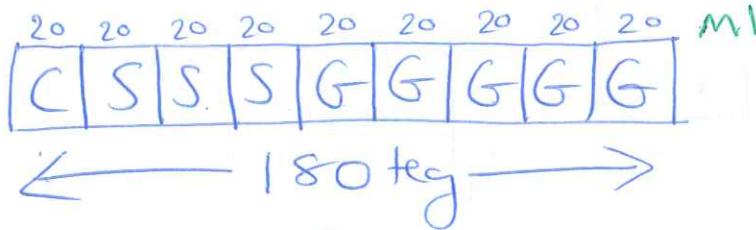 20 20 20 20 20 20 20 20 20 M1
C S S. S G G G G G
180 teg